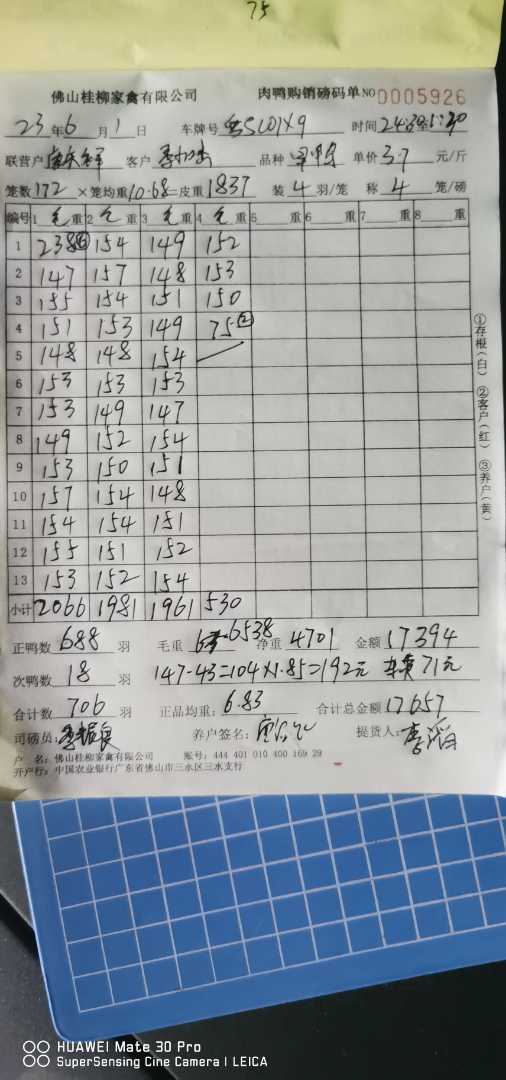 75
佛山桂柳家禽有限公司 肉鸭购销磅码单 NO 0005926
23年6月1日 车牌号 时间
联营户 客户 品种 单价3.7元/斤
笼数172×笼均重10.68=皮重1837 装4羽/笼 称4笼/磅
编号 1毛重 2毛重 3毛重 4毛重 5重 6重 7重 8重
1 238⑥ 154 149 152
2 147 157 148 153
3 155 154 151 150
4 151 153 149 75②
5 148 148 154
6 153 153 153
7 153 149 147
8 149 152 154
9 153 150 151
10 157 154 148
11 154 154 151
12 155 151 152
13 153 152 154
小计 2066 1981 1961 530
正鸭数688羽 毛重 6538 净重4701 金额17394
次鸭数18羽 147-43=104×1.85=192元 71元
合计数706羽 正品均重:6.83 合计总金额17657
司磅员: 养户签名: 提货人:
户 名:佛山桂柳家禽有限公司 账号:444 401 010 400 169 29
开户行:中国农业银行广东省佛山市三水区三水支行
①存根(白) ②客户(红) ③养户(黄)
HUAWEI Mate 30 Pro
SuperSensing Cine Camera | LEICA